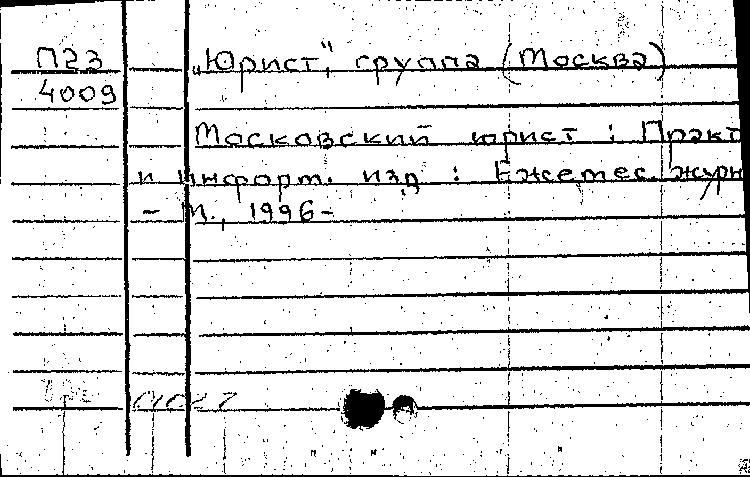 П23 „Юрист“, группа (Москва)
4009
Московский юрист : Практ
и информ. изд : Ежемес. журн
– М., 1996-